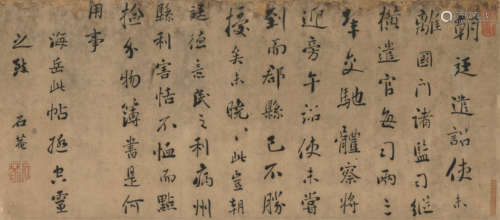 朝廷遣詔使未
離國門諸監司繼
橫遣官每司兩三
輩交馳體察將
迎旁午詔使未嘗
到而郡縣已不勝
擾矣未曉曉此豈朝
廷德意民之利病州
縣利害恬不恤而點
檢勿物簿書是何
用事
海岳此帖極空靈
之致 石菴